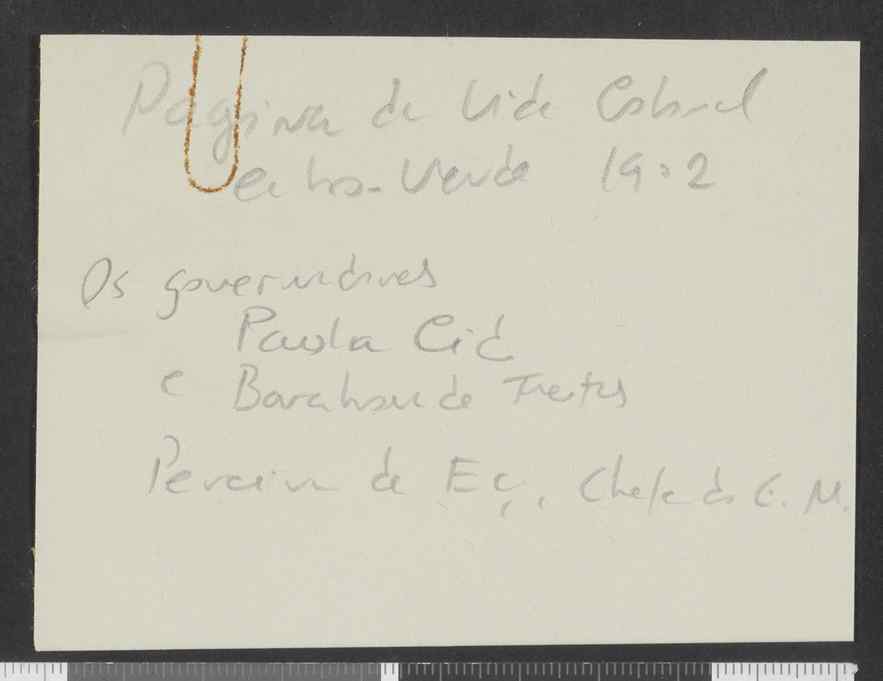 Pagina da Vida Colonial
em Cabo-Verde 1902
Os governadores
Paula Cid
e Barahona de Freitas
Pereira de Eça, Chefe do E. M.